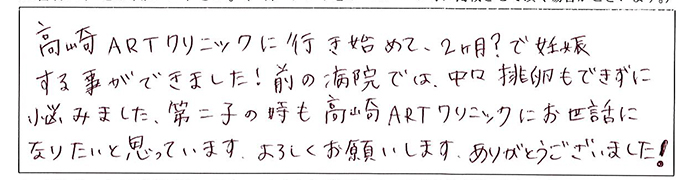 高崎ARTクリニックに行き始めて、2ヶ月?で妊娠
する事ができました!前の病院では、中々排卵もできずに
悩みました、第二子の時も高崎ARTクリニックにお世話に
なりたいと思っています.よろしくお願いします.ありがとうございました!